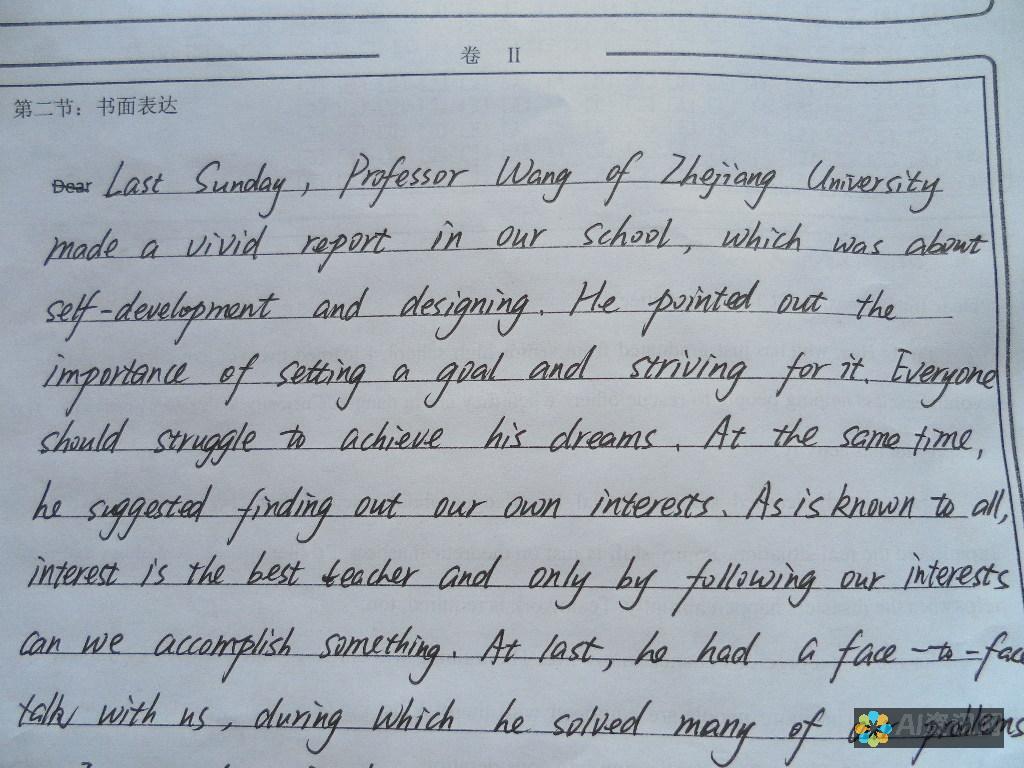 卷 II
第二节：书面表达
Dear Last Sunday, Professor Wang of Zhejiang University
made a vivid report in our school, which was about
self-development and designing. He pointed out the
importance of setting a goal and striving for it. Everyone
should struggle to achieve his dreams. At the same time,
he suggested finding out our own interests. As is known to all,
interest is the best teacher and only by following our interests
can we accomplish something. At last, he had a face-to-face
talk with us, during which he solved many of problems